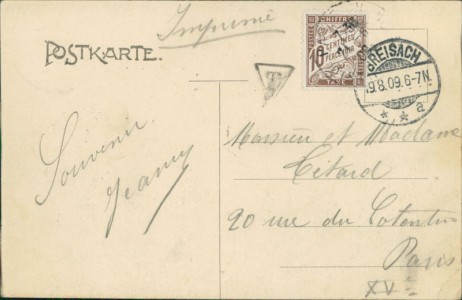 Imprimé
POSTKARTE.
CHIFFRE
10
CENTIMES
À PERCEVOIR
TAXE
T
BREISACH
9.8.09.6-7N.
* * a
Souvenir
Jeanny
Monsieur et Madame
Titard
20 rue du Cotentin
Paris
XVe